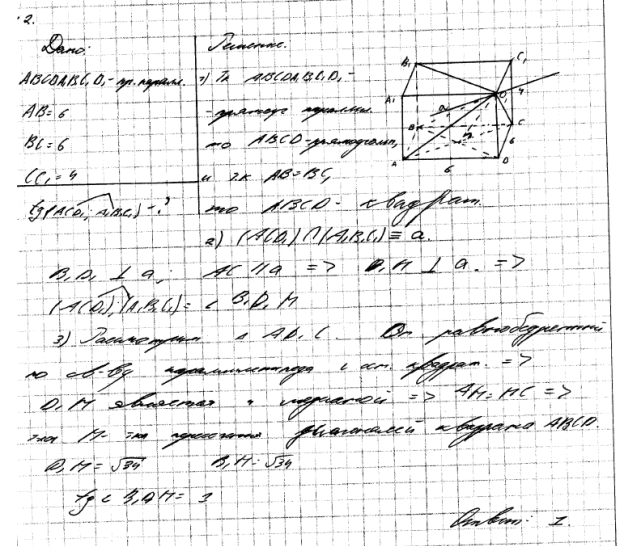 2.
Дано:
ABCDA₁B₁C₁D₁ - пр. паралл.
AB = 6
BC = 6
CC₁ = 4
tg((ACD₁; A₁B₁C₁)) - ?
Решение.
1) Тк ABCDA₁B₁C₁D₁ -
- прямоуг. паралл.
то ABCD - прямоугольн,
и т.к AB = BC,
то ABCD - квадрат.
2) (ACD₁) ∩ (A₁B₁C₁) ≡ a.
B₁D₁ ⊥ a; AC ∥ a => D₁M ⊥ a. =>
(ACD₁);(A₁B₁C₁) = ∠ B₁D₁M
3) Рассмотрим Δ AD₁C. Он равнобедренный
по св-ву параллелепипеда с осн. квадрат. =>
D₁M является и медианой => AM = MC =>
=> M - т-ка пересечения диагоналей квадрата ABCD.
D₁M = √34 B₁M = √34
tg ∠ B₁D₁M = 1
Ответ: 1.
B₁
C₁
A₁
D₁
4
a
B
C
M
6
A
6
D